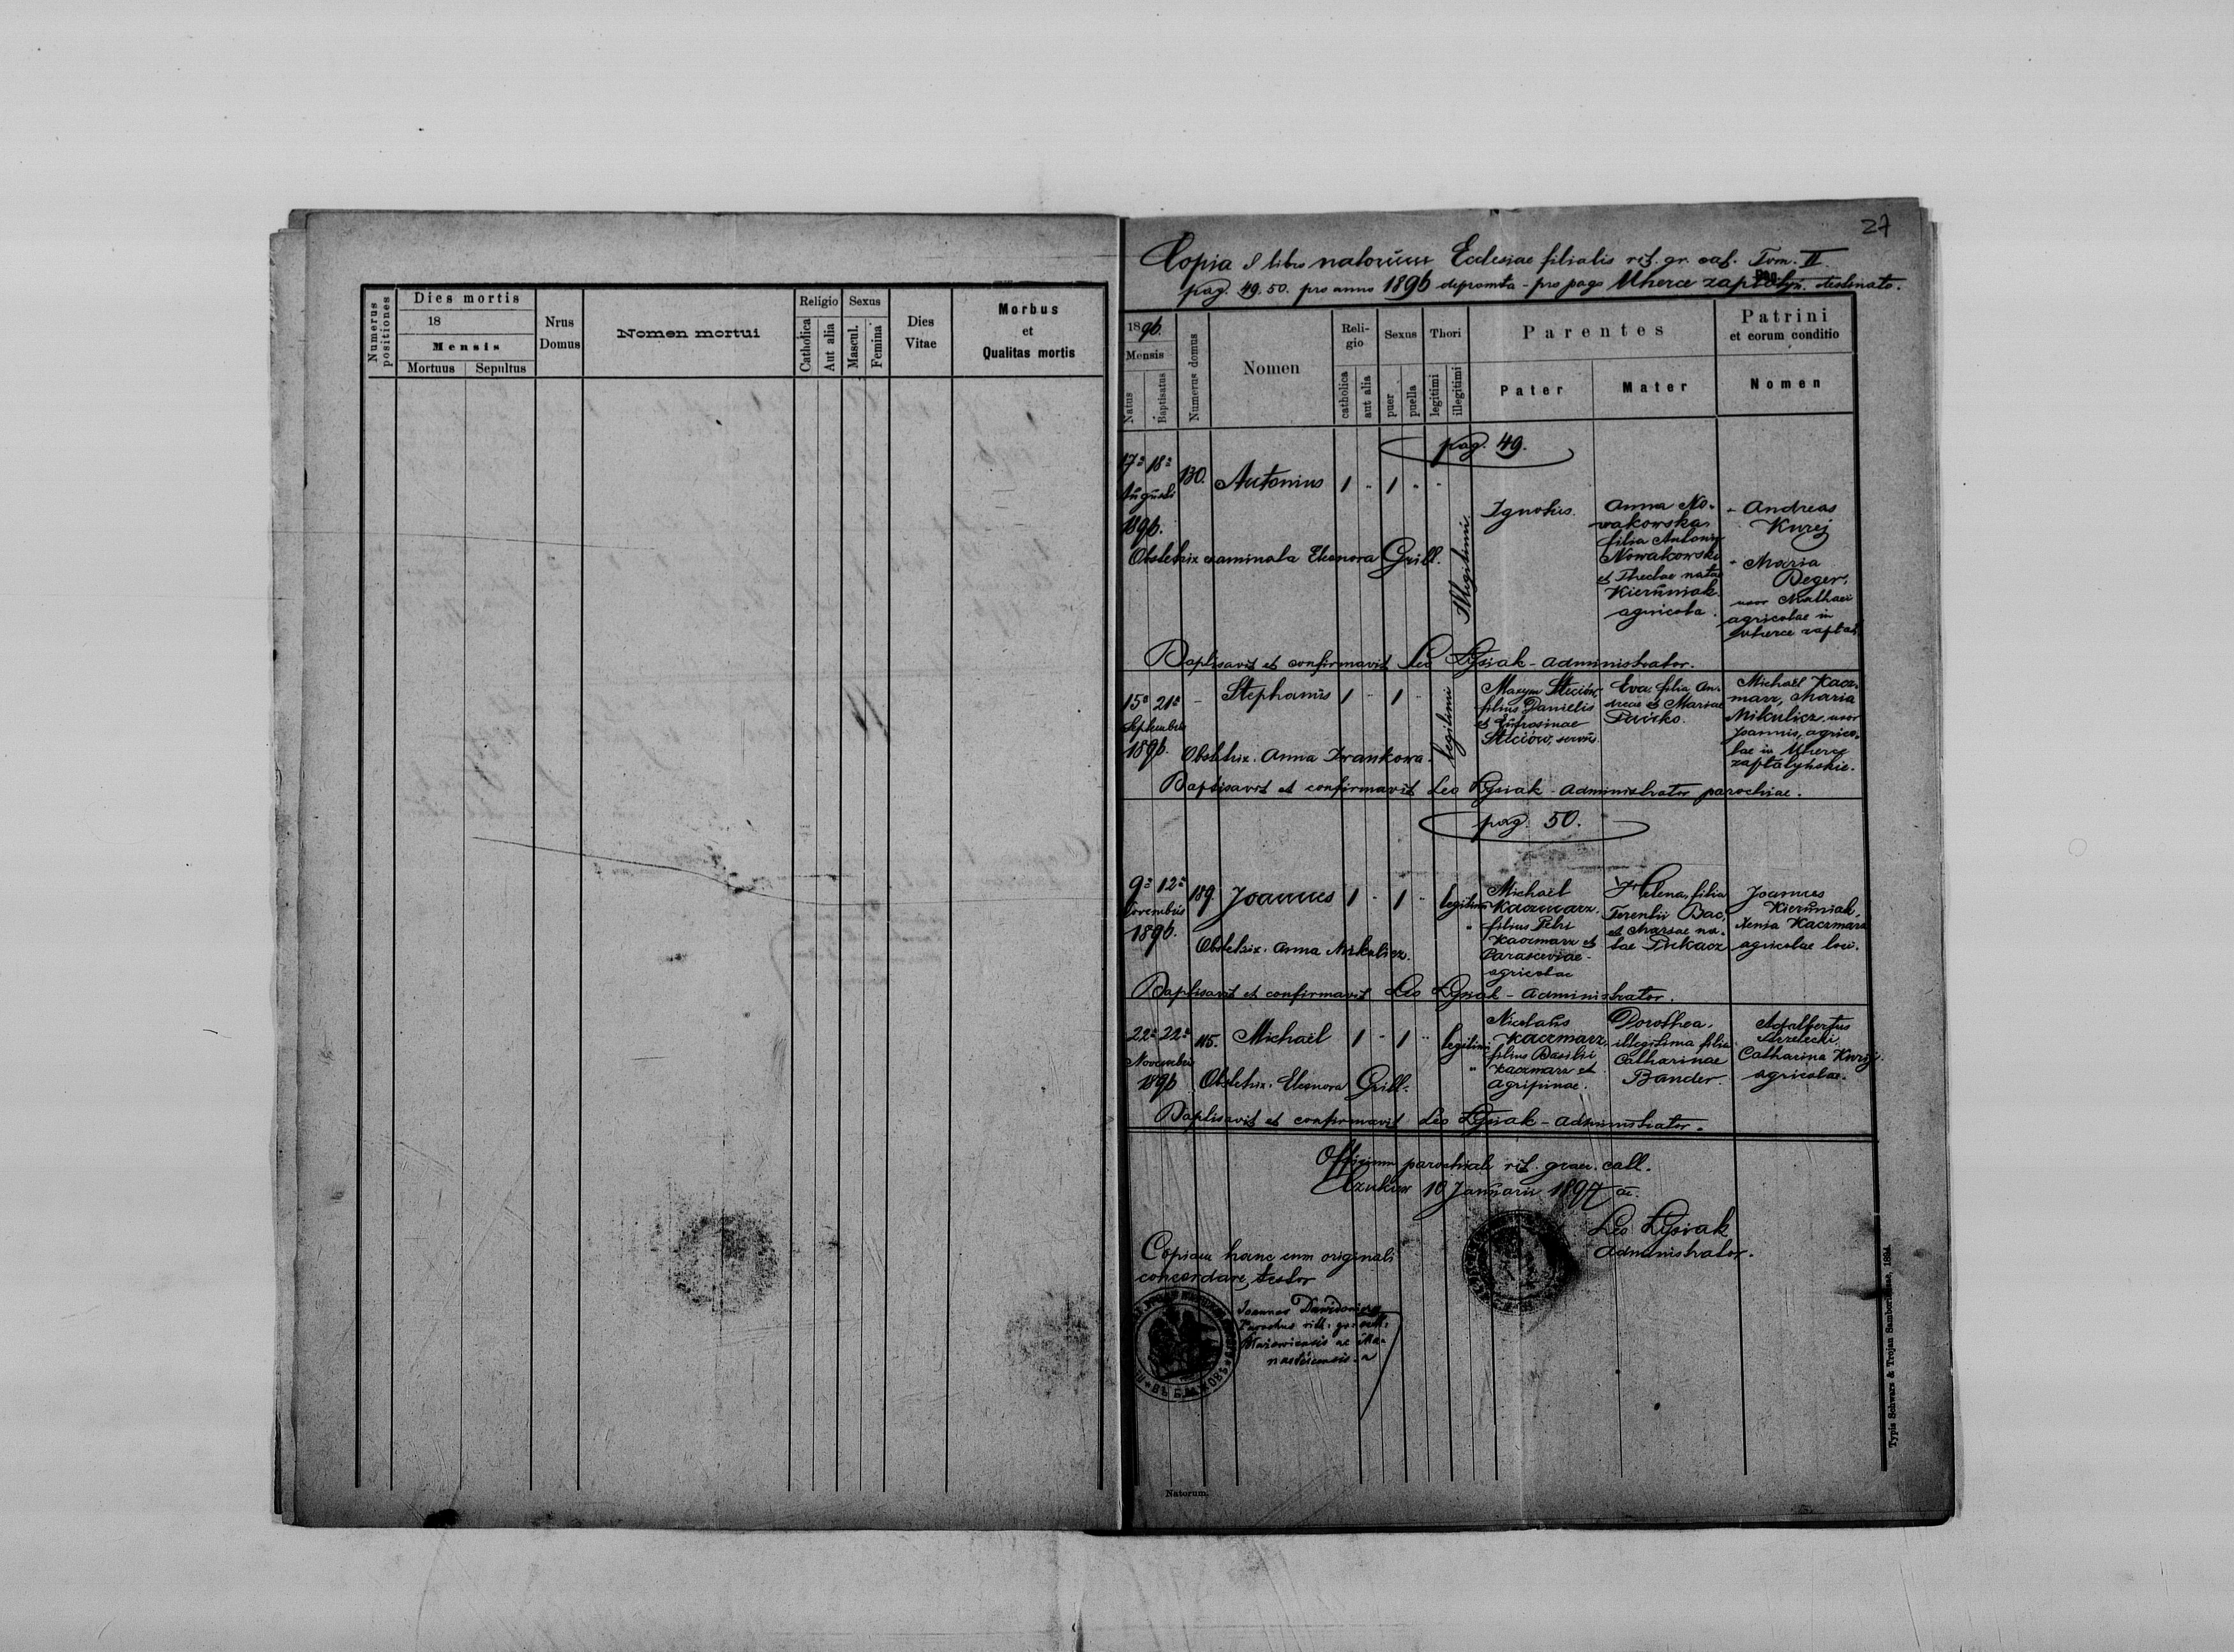 Numerus positiones
Dies mortis
18
Mensis
Mortuus Sepultus
Nrus Domus
Nomen mortui
Religio
Catholica
Aut alia
Sexus
Mascul.
Femina
Dies Vitae
Morbus
et
Qualitas mortis
27
Copia e libro natorum Ecclesiae filialis rit. gr. cat. Tom. II
pag. 49. 50. pro anno 1896 depromta - pro pago Uherce destinato.
1896.
Mensis
Natus
Baptisatus
Numerus domus
Nomen
Religio
catholica
aut alia
Sexus
puer
puella
Thori
legitimi
illegitimi
Parentes
Pater
Mater
Patrini
et eorum conditio
Nomen
pag. 49.
17a 18a
Augusti
1896.
130. Antonius 1 " 1 " "
Illegitimi
Ignotus.
Anna No-
wakowska
filia Antonii
Nowakowski
et Theclae natae
Kieruniak
agricola.
- Andreas
Kurej
- Maria
Beger,
uxor Mathaei
agricolae in
Uherce
Obstetrix examinata Eleonora Grill.
Baptisavit et confirmavit Leo Łysiak - administrator.
15a 21a
Septembris
1896.
- Stephanus 1 " 1 "
legitimi
Maxym Steciów,
filius Danielis
et Eufrosinae
Steciów,
Eva filia An-
dreae et Mariae
Michaël Kacz-
marz, Maria
Mikulicz, uxor
Joannis, agrico-
lae in Uherce
zaptatyńskie.
Obstetrix. Anna Iwankowa.
Baptisavit et confirmavit Leo Łysiak - administrator parochiae.
pag. 50.
9a 12a
Novembris
1896.
189. Joannes 1 " 1 " legitimi
Michaël
Kaczmarz,
filius Petri
Kaczmarz et
Parasceviae -
agricolae
Helena, filia
Terentii Bac,
et Mariae na-
tae Tukacz
Joannes
Kieruniak,
Xenia Kaczmarz
agricolae loci.
Obstetrix. Anna Mikulicz.
Baptisavit et confirmavit Leo Łysiak - administrator.
22a 22a
Novembris
1896
115. Michaël 1 " 1 " legitimi
Nicolaus
Kaczmarz,
filius Basilii
Kaczmarz et
Agripinae.
Dorothea,
illegitima filia
Catharinae
Bander.
Adalbertus
Strzelecki,
Catharina Kurij
agricolae.
Obstetrix. Eleonora Grill.
Baptisavit et confirmavit Leo Łysiak - administrator.
Officium parochiale rit. graec. cath.
10 Januarii 1897
Leo Łysiak
administrator.
Copiam hanc cum originali
concordare, testor
Joannes
Parochus rith: gr: cath:
Natorum.
Typis Schwarz & Trojan Samboriense, 1894.